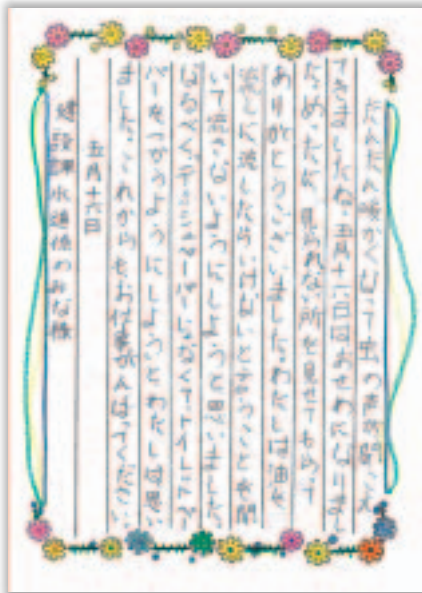 だんだん暖かくなって虫の声が聞こえ
てきましたね。五月十六日はおせわになりまし
た。めったに見られない所を見せてもらって
ありがとうございました。わたしは油を
流しに流したらいけないと言うことを聞
いて流さないようにしようと思いました。
なるべくティッシュペーパーじゃなくて、トイレットペー
パーをつかうようにしようとわたしは思い
ました。これからもお仕事がんばってください。
五月十六日
建設課水道係のみな様